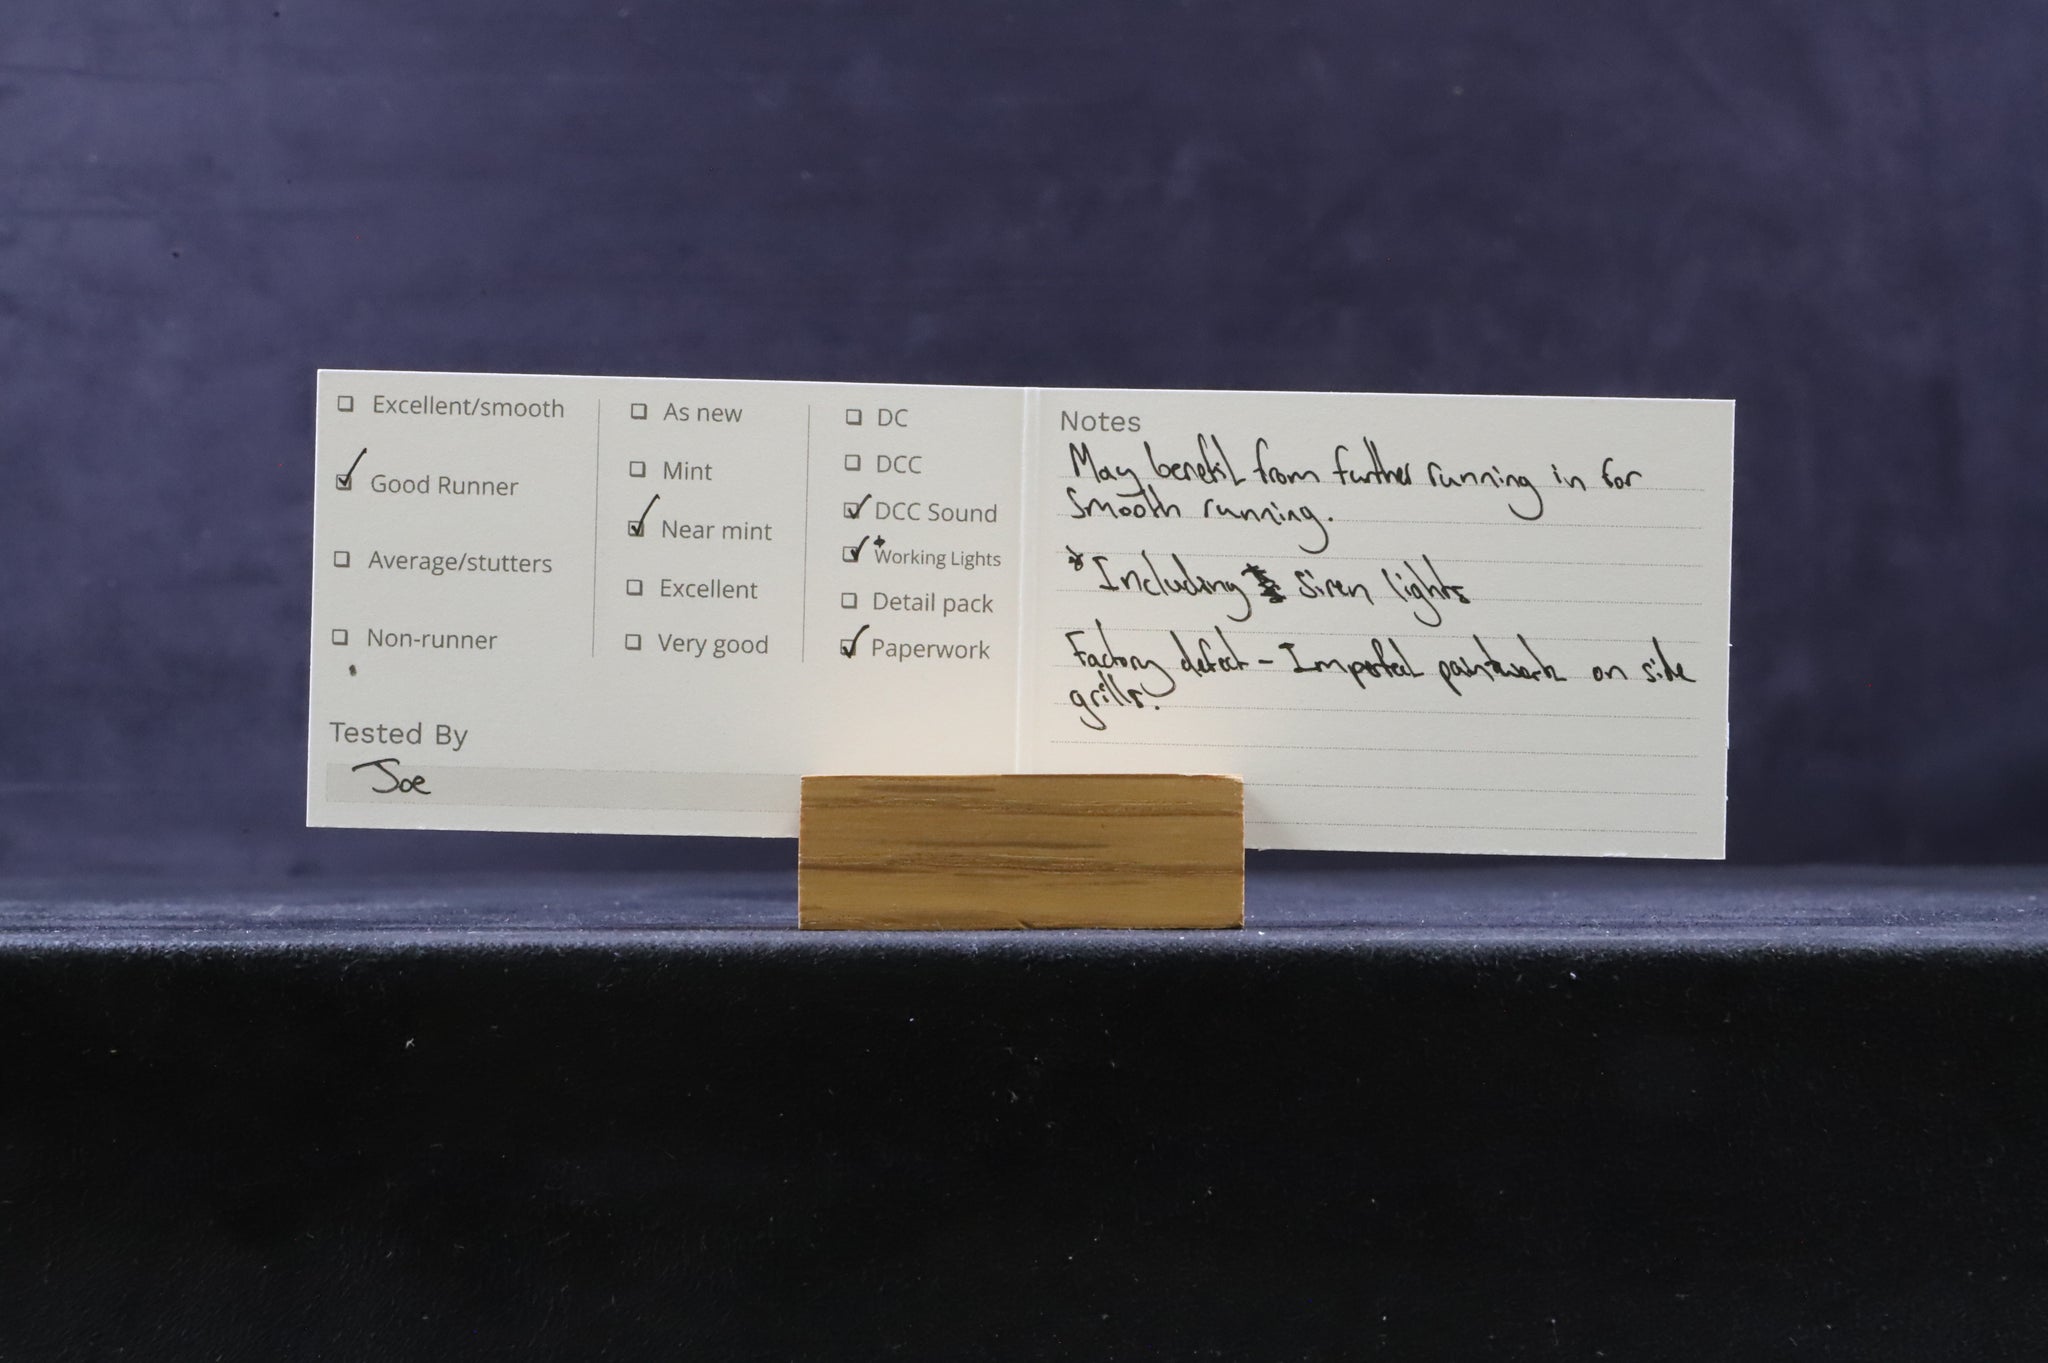 Excellent/smooth
Good Runner
Average/stutters
Non-runner
As new
Mint
Near mint
Excellent
Very good
DC
DCC
DCC Sound
*Working Lights
Detail pack
Paperwork
Tested By
Joe
Notes
May benefit from further running in for
smooth running.
*Including siren lights
Factory defect - Imperfect paintwork on side
grills.